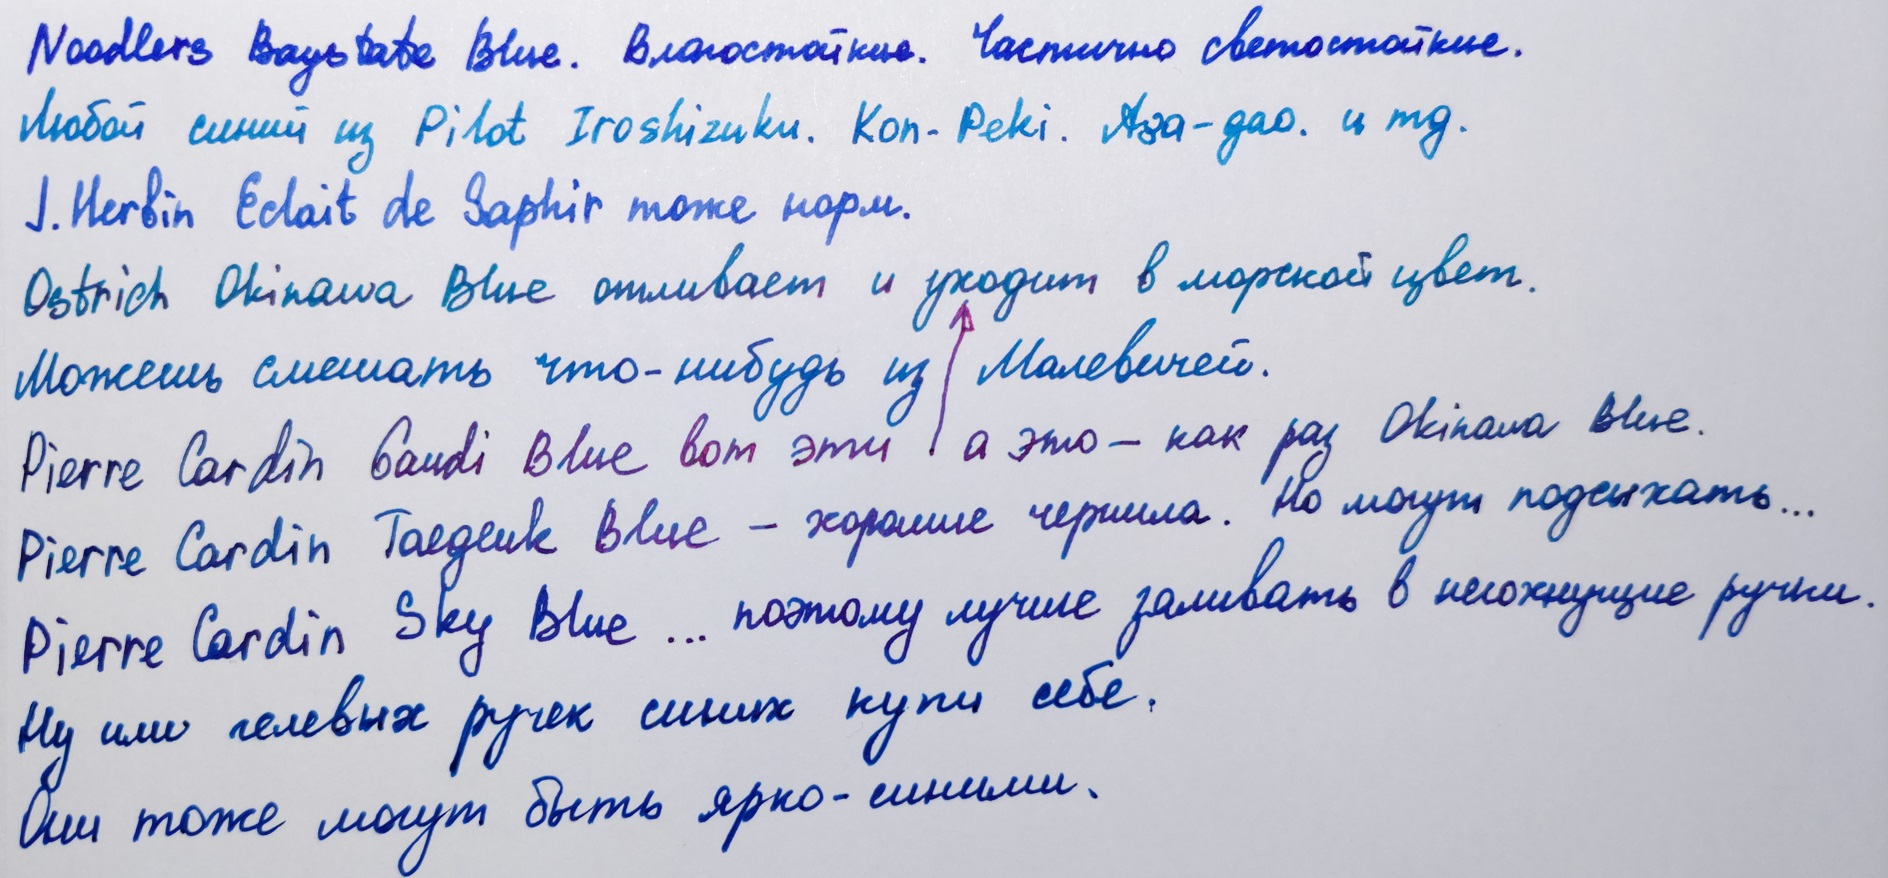 Noodlers Baystate Blue. Влагостойкие. Частично светостойкие.
Любой синий из Pilot Iroshizuku. Kon-Peki. Аза-gao. и тд.
J. Herbin Eclait de Saphir тоже норм.
Ostrich Okinawa Blue отливает и уходит в морской цвет.
Можешь смешать что-нибудь из Малевичей.
Pierre Cardin Gaudi Blue вот эти а это — как раз Okinawa Blue.
Pierre Cardin Taegeuk Blue — хорошие чернила. Но могут подсыхать...
Pierre Cardin Sky Blue ... поэтому лучше заливать в несохнущие ручки.
Ну или гелевых ручек синих купи себе.
Они тоже могут быть ярко-синими.